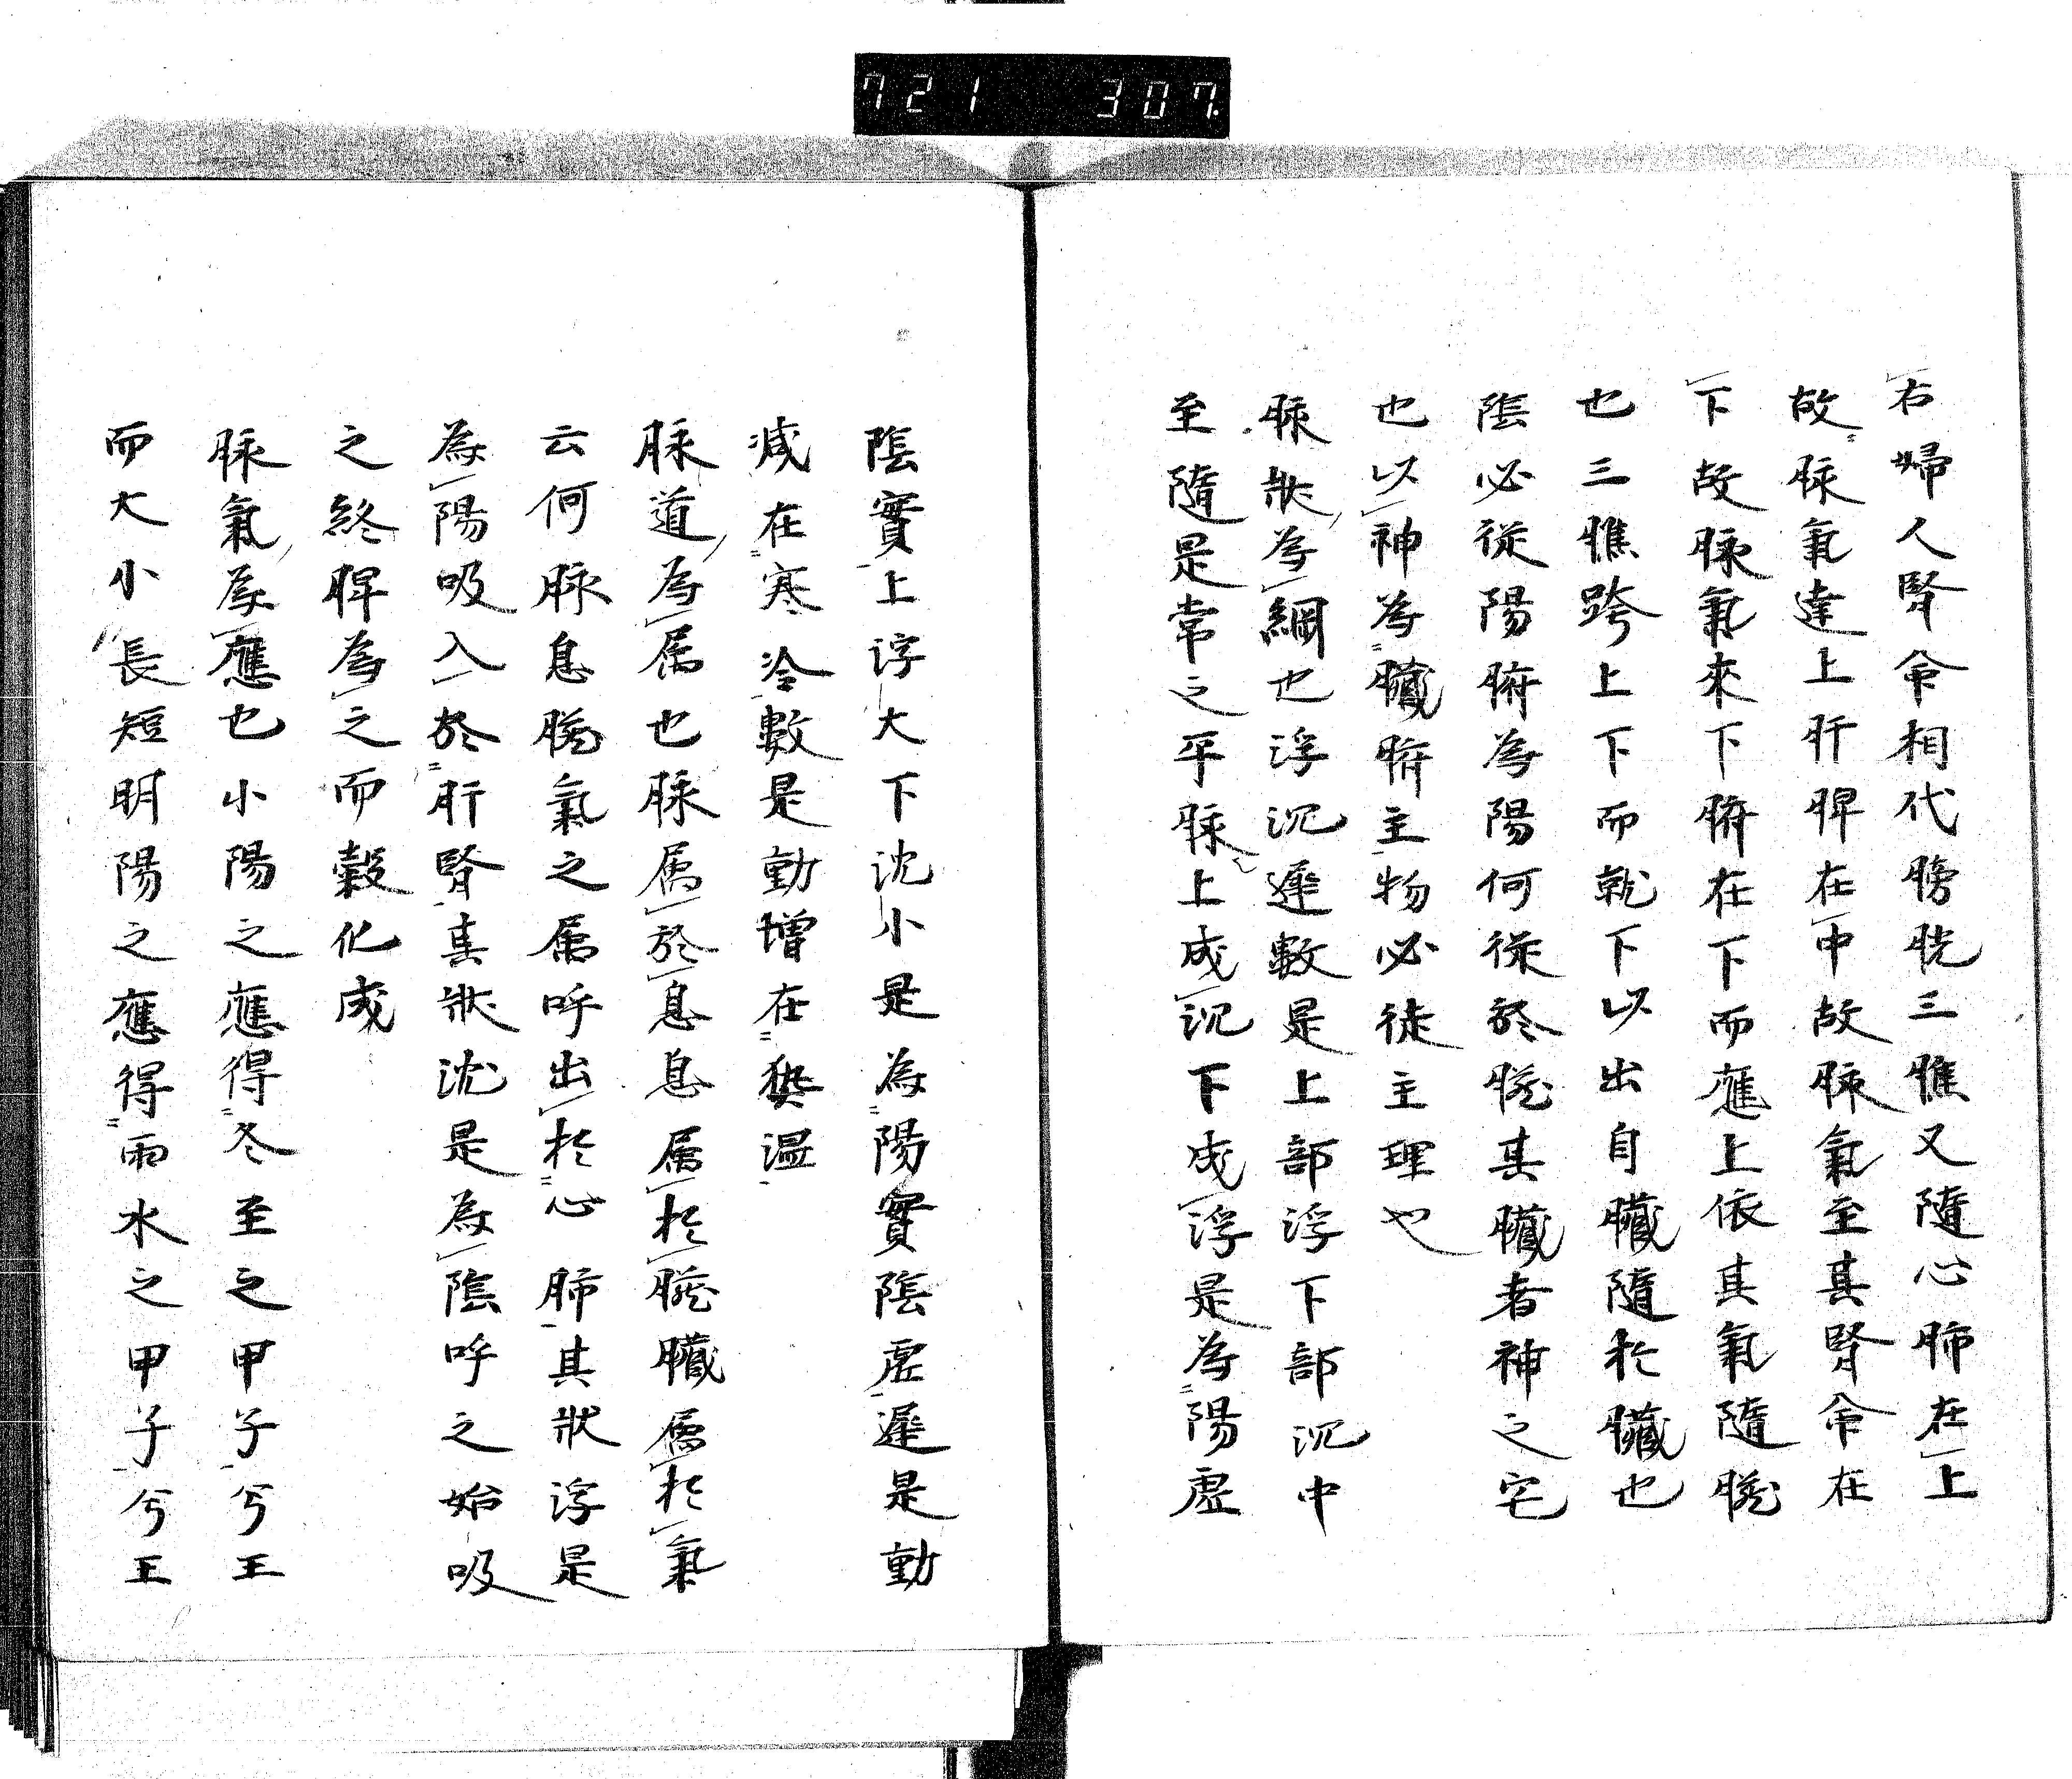 721 307.
右婦人腎命相代膀胱三膲又隨心肺在上
故脉氣達上肝脾在中故脉氣至其腎命在
下故脉氣來下腑在下而應上依其氣隨臓
也三膲跨上下而就下以出自臓隨於臓也
陰必從陽腑為陽何從於臓其臓者神之宅
也以神為臓腑主物必徒主理也
脉状為綱也浮沉遲數是上部浮下部沉中
至隨是常之平脉上成沉下成浮是為陽虚
陰實上浮大下沈小是為陽實陰虚遲是動
减在寒冷數是動增在熱温
脉道為属也脉属於息息属於臓臓属於氣
云何脉息臓氣之属呼出於心肺其狀浮是
為陽吸入於肝腎其状沈是為陰呼之始吸
之終脾為之而穀化成
脉氣為應也小陽之應得冬至之甲子兮王
而大小長短明陽之應得雨水之甲子兮王